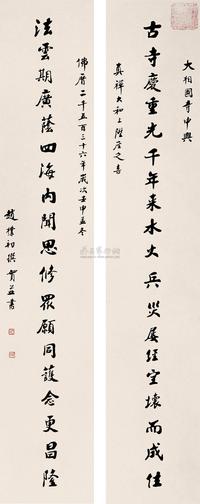 大相國寺中興
真禪大和上陞座之喜
古寺慶重光千年來水火兵災屢經空壞而成住
法雲期廣蔭四海內聞思修眾願同護念更昌隆
佛曆二千五百三十六年歲次壬申孟冬
趙樸初撰賀並書